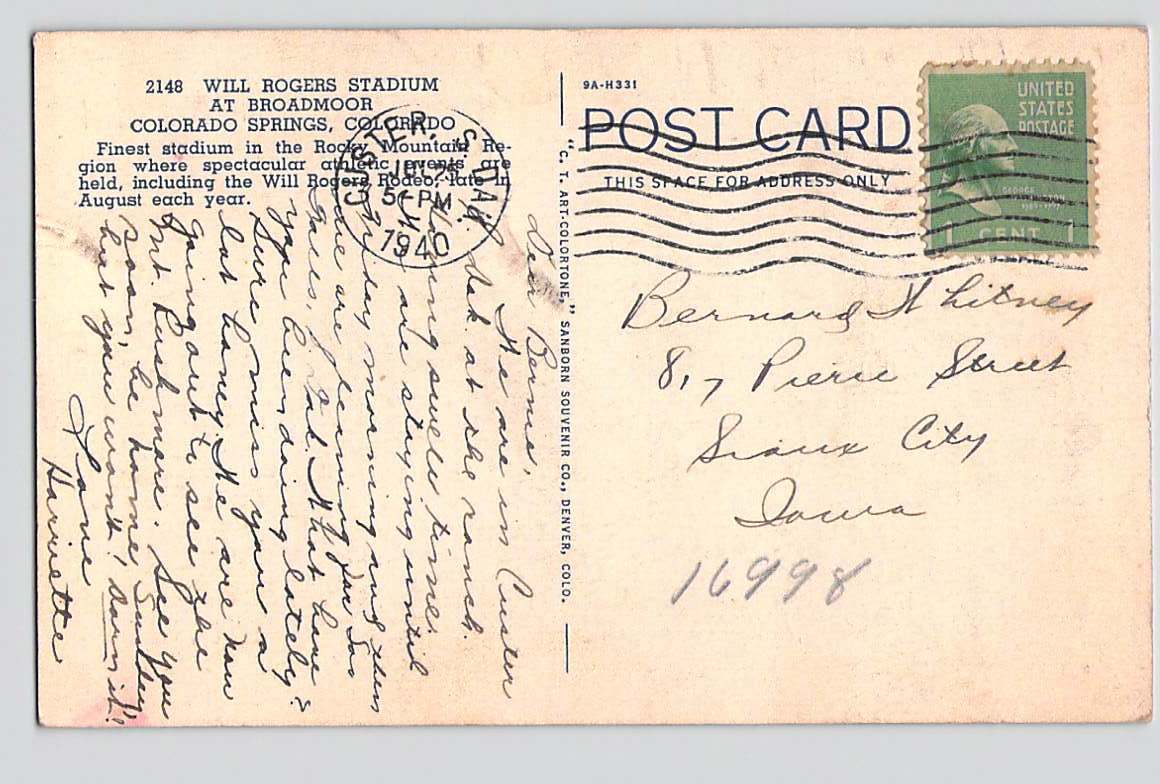 2148 WILL ROGERS STADIUM
AT BROADMOOR
COLORADO SPRINGS, COLORADO
Finest stadium in the Rocky Mountain Re-
gion where spectacular athletic events are
held, including the Will Rogers Rodeo, late in
August each year.
CUSTER, S. DAK.
JUL 25
5 - PM
1940
Dear Bernie,
We are in Custer
S. Dak at the ranch.
Having swell time.
We are staying until
Friday morning and then
we are leaving for Los
you been doing lately?
Sure miss you a
lot honey. We are now
going out to see the
Mt. Rushmore. See you
soon, be home Sunday,
but you won't! Darn it!
Love
Harriette
"C. T. ART-COLORTONE," SANBORN SOUVENIR CO., DENVER, COLO.
9A-H331
POST CARD
THIS SPACE FOR ADDRESS ONLY
UNITED
STATES
POSTAGE
GEORGE
WASHINGTON
1 CENT 1
Bernard Whitney
817 Pierce Street
Sioux City
Iowa
16998